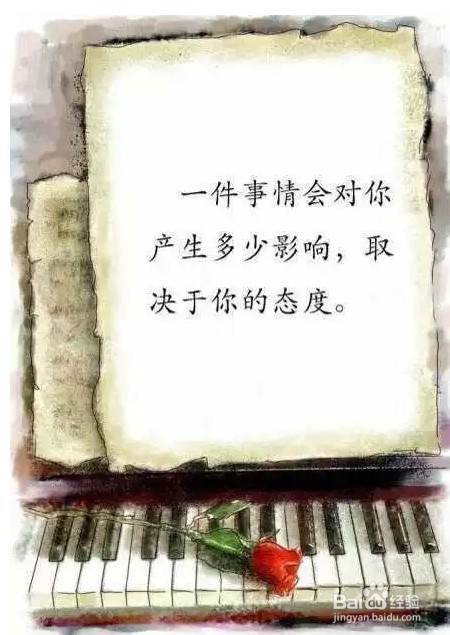 一件事情会对你
产生多少影响，取
决于你的态度。
Baidu经验
jingyan.baidu.com